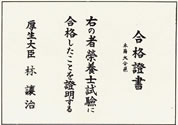 合格證書
本籍大分縣
右の者榮養士試驗に
合格したことを證明する
厚生大臣 林讓治